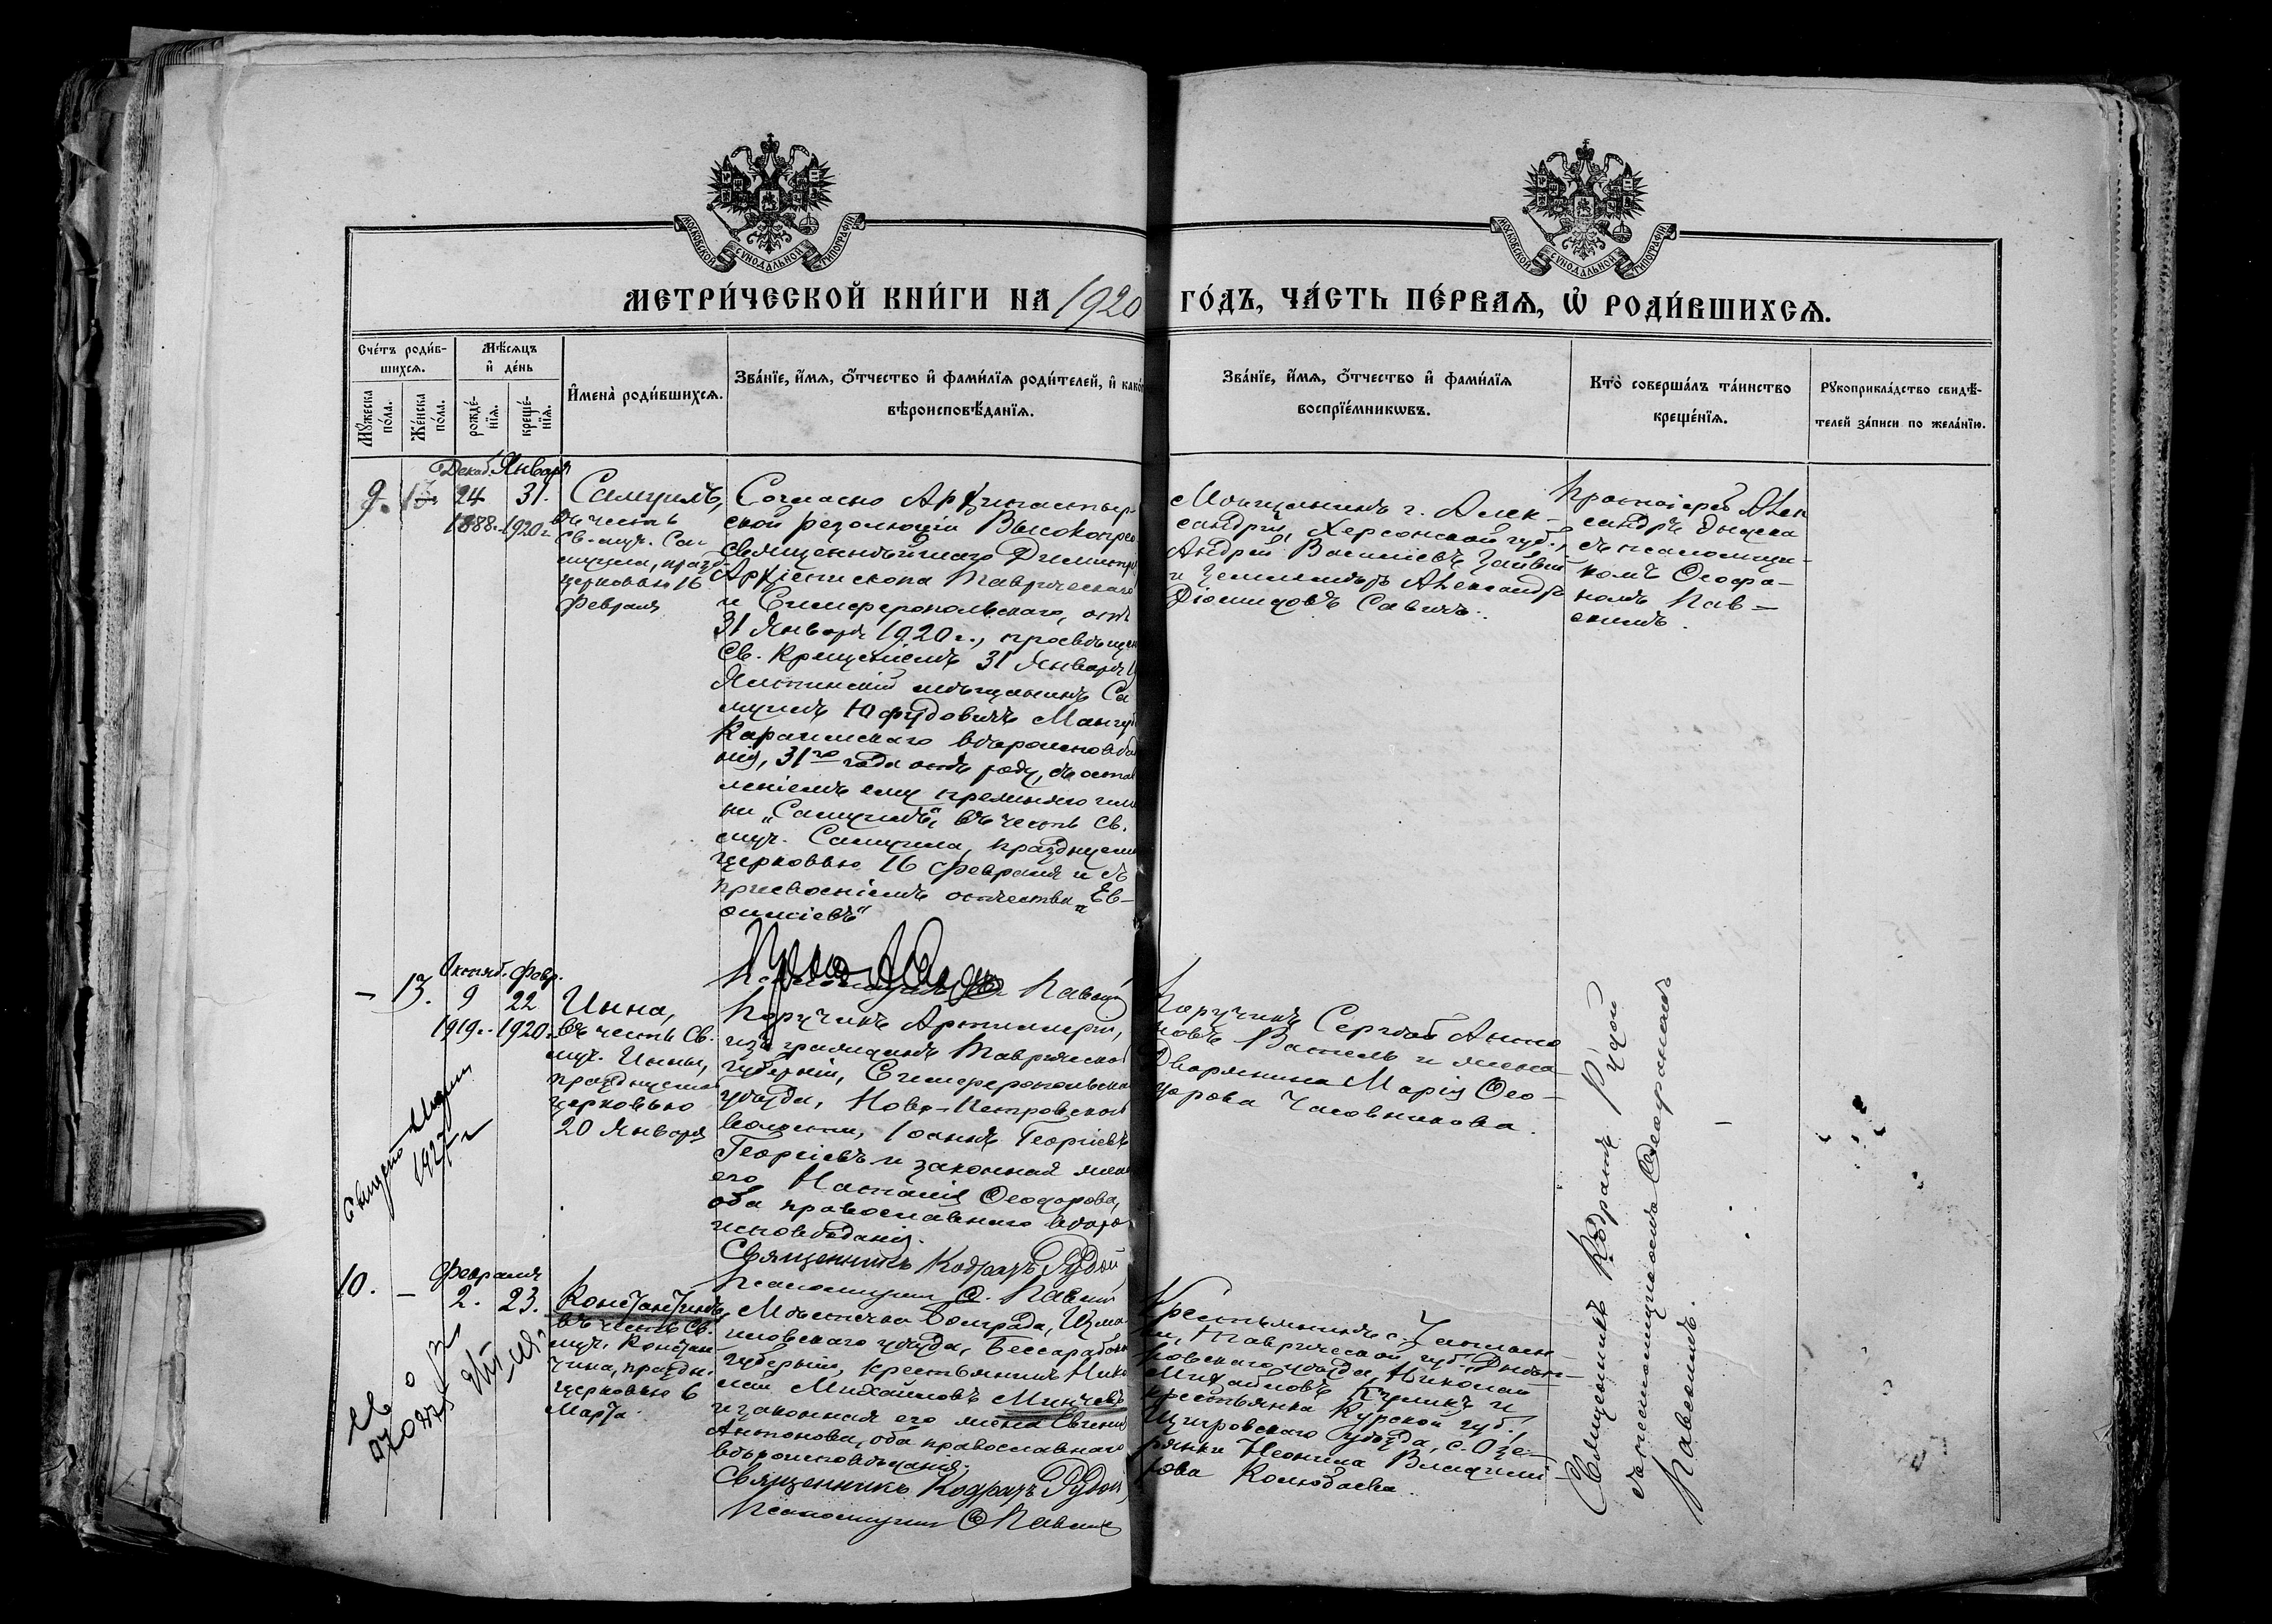 МОСКОВСКОЙ СУНОДАЛЬНОЙ ТИПОГРАФІИ
МОСКОВСКОЙ СУНОДАЛЬНОЙ ТИПОГРАФІИ
МЕТРИ́ЧЕСКОЙ КНИ́ГИ НА 1920 ГО́ДЪ, ЧА́СТЬ ПЕ́РВАЯ, Ѡ҆ РОДИ́ВШИХСЯ.
Сче́тъ роди́в-
шихся.
Мꙋжеска
по́ла.
Же́нска
по́ла.
Мѣ́сяцъ
и҆ де́нь
рожде́-
нїя.
креще́-
нїя.
И҆мена̀ роди́вшихся.
Зва́нїе, и҆́мя, ѻ҆́тчество и҆ фами́лїя роди́телей, и҆ како́
вѣроисповѣ́данїя.
Зва́нїе, и҆́мя, ѻ҆́тчество и҆ фами́лїя
воспрїе́мникѡвъ.
Кто̀ соверша́лъ та́инство
креще́нїя.
Рꙋкоприкла́дство свидѣ́-
телей за́писи по жела́нїю.
9.
Декаб. Января
24 31.
1888.-1920г.
Самуилъ,
въ честь
Св. муч. Са-
муила, празд.
церковью 16
февраля
Согласно Архипастыр-
ской резолюціи Высокопрео-
священнѣйшаго Димитрія
Архіепископа Таврическаго
и Симферопольскаго, отъ
31 Января 1920 г., просвѣщен
Св. Крещеніемъ 31 Января
Ялтинскій мѣщанинъ Са-
муилъ Юфудовичъ Мангуб
Караимскаго вѣроисповѣда
нія, 31го года отъ роду, съ остав
леніемъ ему прежняго име
ни „Самуилъ“, въ честь Св.
муч. Самуила, празднуем
церковью 16 февраля и съ
присвоеніемъ отчества „Ев-
ѳиміевъ“
Мѣщанинъ г. Алек-
сандріи, Херсонской губ.,
Андрей Василіевъ
и Землемѣръ Александръ
Діомидовъ Савичъ.
Протоіерей Алек
сандръ
съ псаломщи-
комъ Ѳеофа-
номъ Пав-
скимъ.
Павскій
- 13.
Октяб. Февр.
9 22
1919.-1920г.
Инна,
въ честь Св.
муч. Инны,
празднуемой
церковью
20 Января
Поручикъ Артиллеріи,
изъ гражданъ Таврической
губерніи, Симферопольска
уѣзда, Ново-Петровской
волости, Іоаннъ Георгіевъ
Георгіевъ и законная жена
его Наталія Ѳеодорова,
оба православнаго вѣро
исповѣданія.
Священникъ Кодратъ Рудой
Псаломщикъ Ѳ. Павскій
Поручикъ Сергѣй Анто
новъ Ватель и жена
Дворянина Марія Ѳео-
дорова Часовникова.
Священникъ Кодратъ Рудой
съ псаломщикомъ Ѳеофаномъ
Павскимъ.
1927 г
10. -
Февраля
2. 23.
Константинъ,
въ честь Св.
муч. Констан
тина, праздн.
церковью 6
Марта.
Мѣстечка Болграда, Изма-
иловскаго уѣзда, Бессарабской
губерніи, крестьянинъ Нико
лай Михайловъ Минчевъ
и законная его жена Евгенія
Антонова, оба православнаго
вѣроисповѣданія.
Священникъ Кодратъ Рудой
Псаломщикъ Ѳ Павскій
Крестьянинъ с. Чаплин
ки, Таврической губ., Днѣп-
ровскаго уѣзда, Николай
Михайловъ и
крестьянка Курской губ.,
Щигровскаго уѣзда, с. Озе-
рянки Неонила Владимі-
рова Колюбаева.